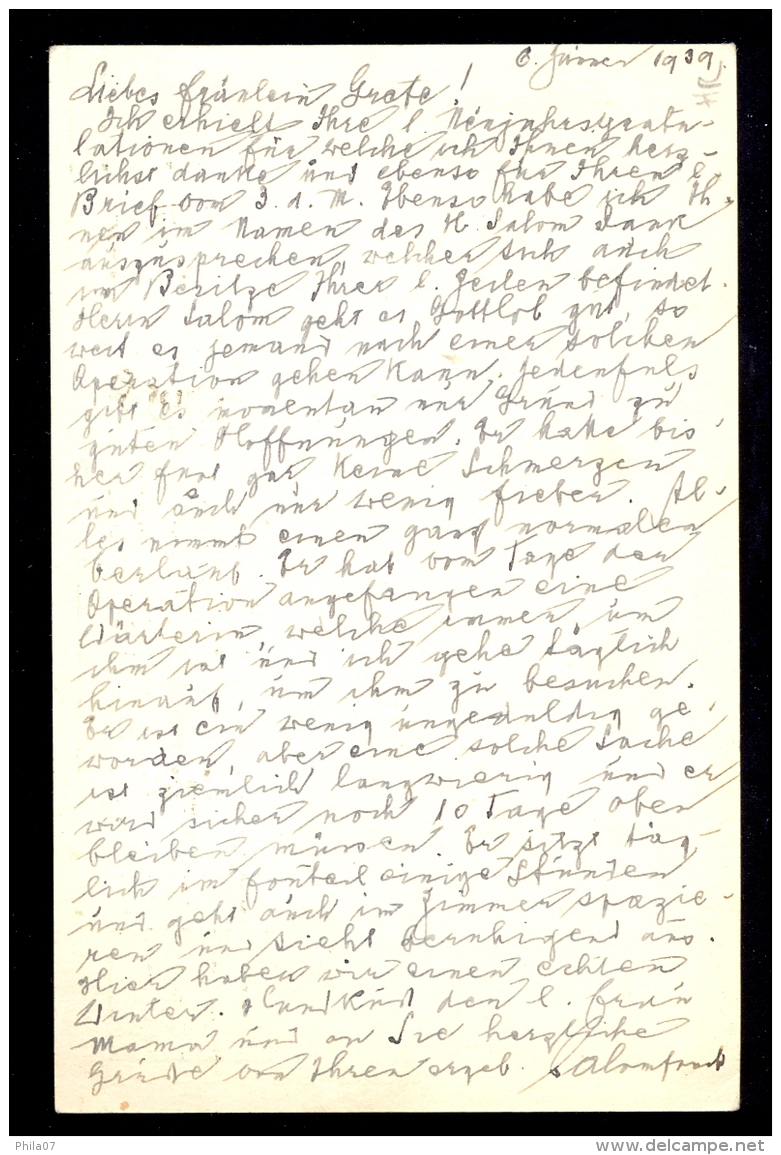 6. Jänner 1939.
Liebes Fräulein Grete!
Ich erhielt Ihre l. Neujahrsgratu-
lationen für welche ich Ihnen herz-
lichst danke und ebenso für Ihren l.
Brief vom 3. d. M. Ebenso habe ich Ih-
nen im Namen des H. Salom Dank
auszusprechen, welcher sich auch
im Besitze Ihrer l. Zeilen befindet.
Herrn Salom geht es Gottlob gut, so
weit es jemand nach einer solchen
Operation gehen kann. Jedenfalls
gibt es momentan nur Grund zu
guten Hoffnungen. Er hatte bis-
her fast gar keine Schmerzen
und auch nur wenig Fieber. Al-
les nimmt einen ganz normalen
Verlauf. Er hat vom Tage der
Operation angefangen eine
Wärterin, welche immer um
ihm ist und ich gehe täglich
hinauf, um ihm zu besuchen.
Er ist ein wenig ungeduldig ge-
worden, aber eine solche Sache
ist ziemlich langwierig und er
wird sicher noch 10 Tage oben
bleiben müssen. Er sitzt täg-
lich im Fauteil einige Stunden
und geht auch im Zimmer spazie-
ren und sieht beruhigend aus.
Hier haben wir einen echten
Winter. den l. Frau
Mama und an Sie herzliche
Grüße von Ihren ergeb.
Phila07
www.delcampe.net